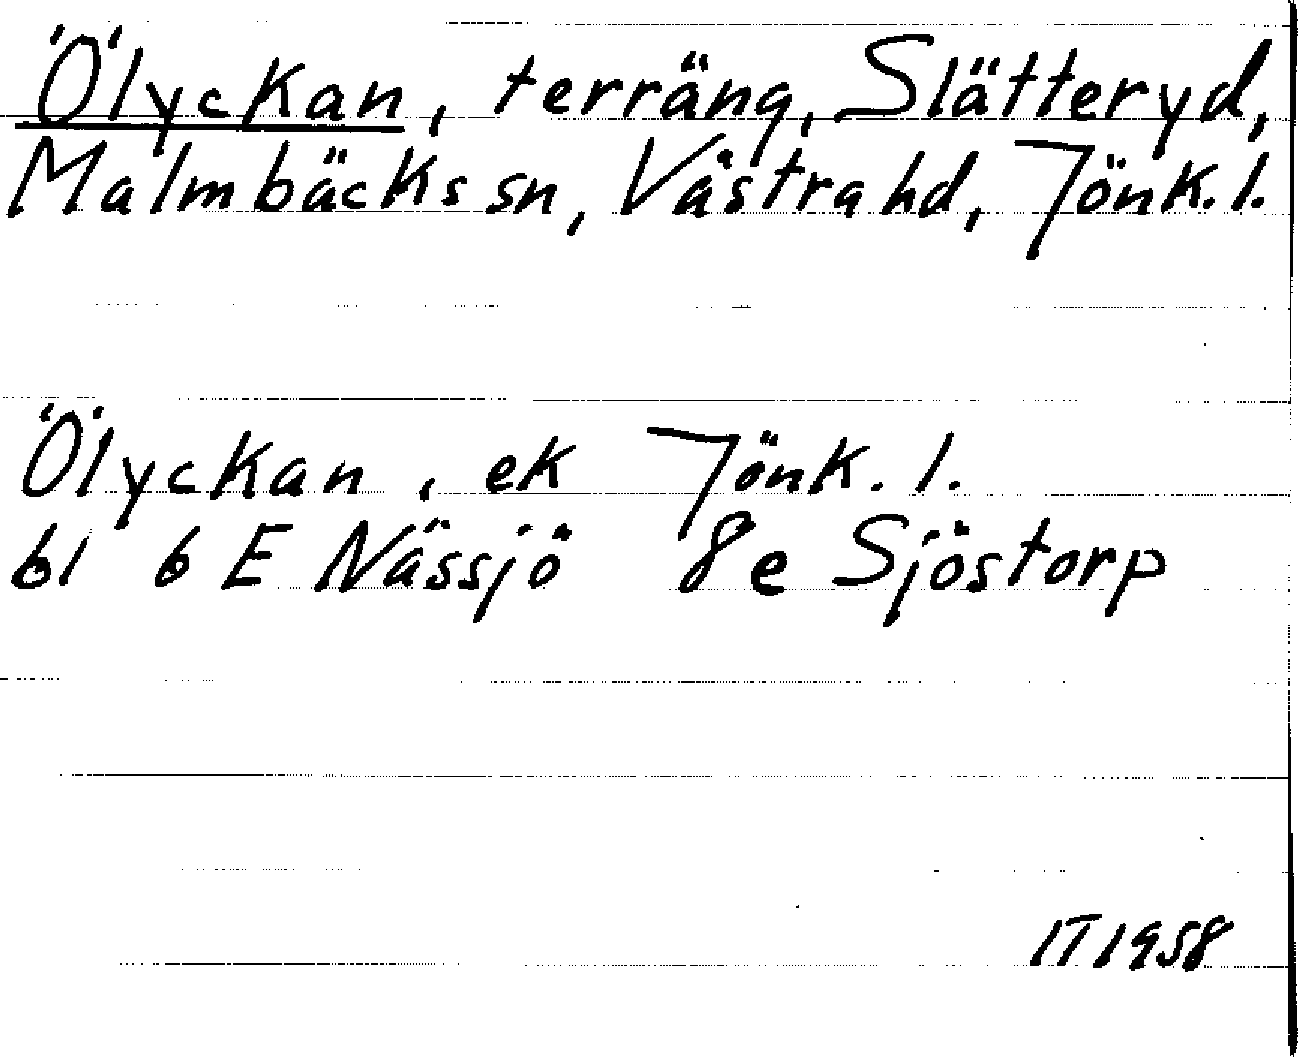 Ölyckan, terräng, Slätteryd,
Malmbäcks sn, Västra hd, Jönk. l.
Ölyckan, ek Jönk. l.
bl 6 E Nässjö 8e Sjöstorp
IT 1958